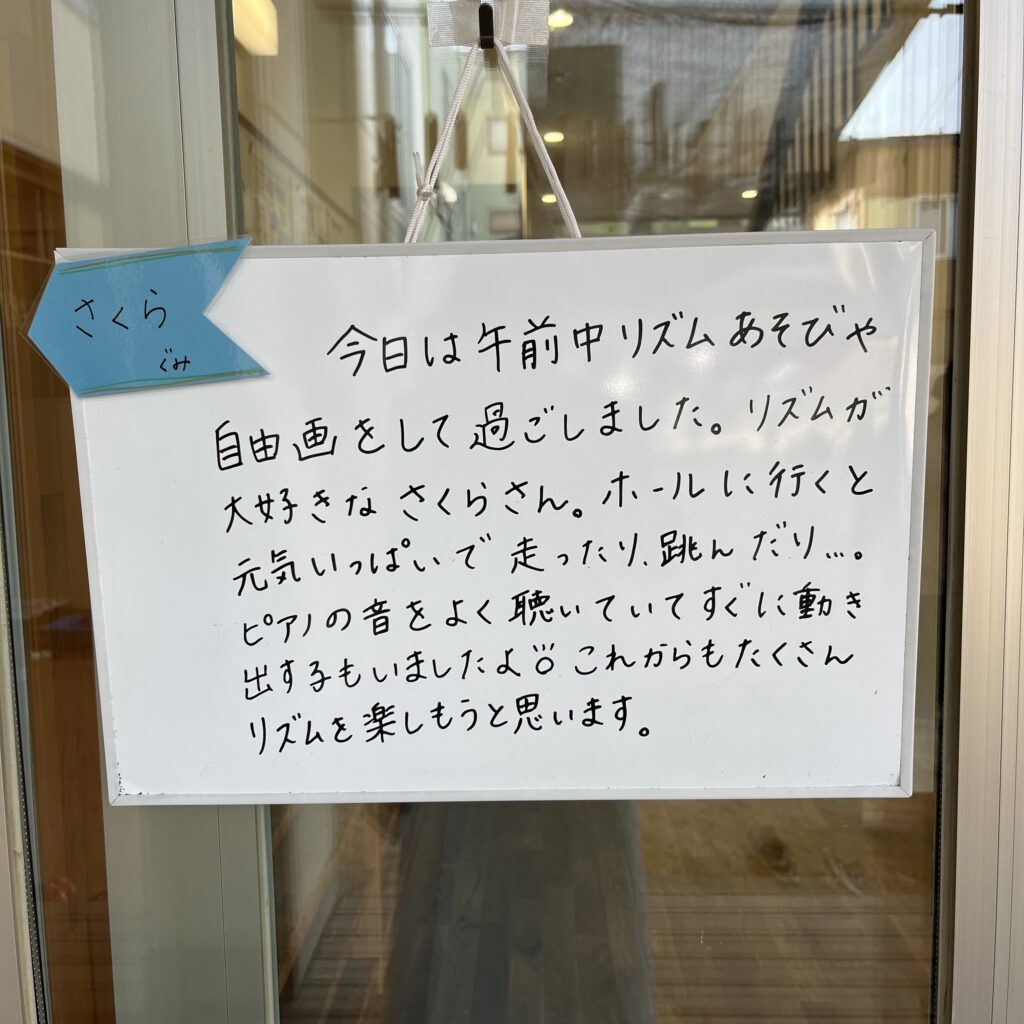 さくら
ぐみ
今日は午前中リズムあそびや
自由画をして過ごしました。リズムが
大好きなさくらさん。ホールに行くと
元気いっぱいで走ったり、跳んだり…。
ピアノの音をよく聴いていてすぐに動き
出す子もいましたよ これからもたくさん
リズムを楽しもうと思います。